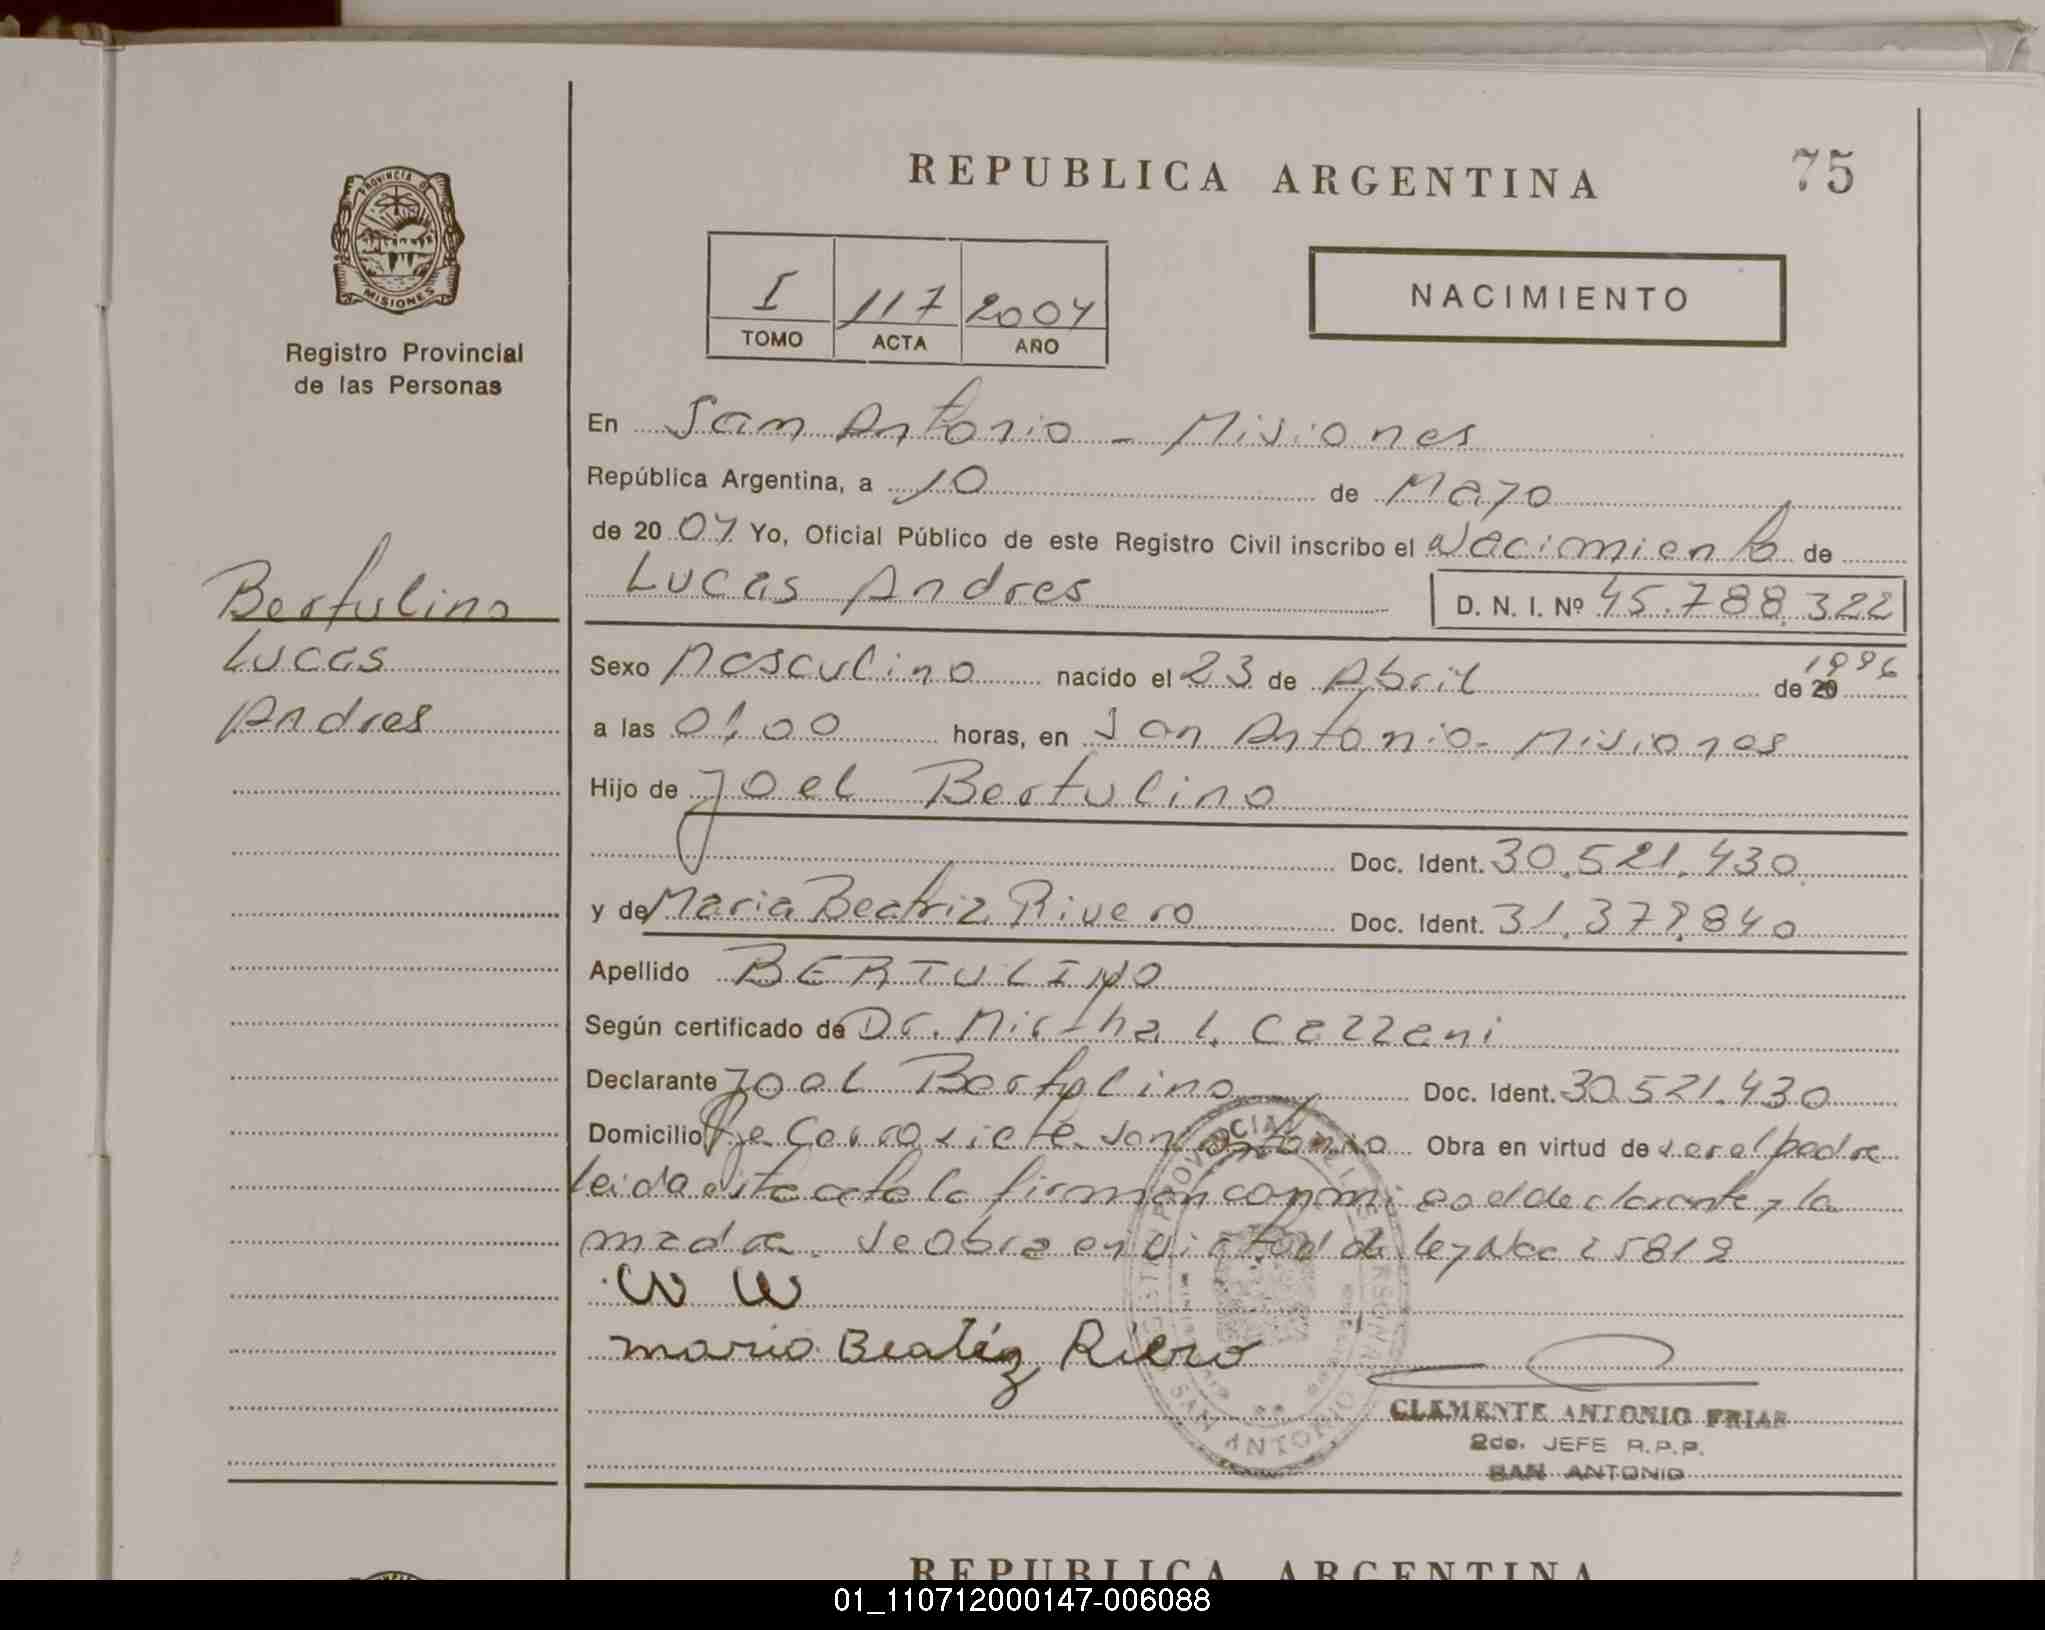 REPUBLICA ARGENTINA
75
PROVINCIA DE
MISIONES
Registro Provincial
de las Personas
I 117 2004
TOMO ACTA AÑO
NACIMIENTO
En San Antonio - Misiones
República Argentina, a 10 de Mayo
de 2004 Yo, Oficial Público de este Registro Civil inscribo el Nacimiento de
Lucas Andres D. N. I. Nº 45.788.322
Bertulino
Lucas
Andres
Sexo Masculino nacido el 23 de Abril de 20 1996
a las 01,00 horas, en San Antonio - Misiones
Hijo de Joel Bertulino
Doc. Ident. 30.521.430
y de Maria Beatriz Rivero Doc. Ident. 31.379.840
Apellido BERTULINO
Según certificado de Dr. Mirtha L. Cazzani
Declarante Joel Bertulino Doc. Ident. 30.521.430
Domicilio siete San Antonio Obra en virtud de ser el padre
leida este acta la firman conmigo el declarante y la
madre. Se obra en virtud de ley Nro 25819
Maria Beatriz Riero
SAN ANTONIO
CLEMENTE ANTONIO FRIAS
2do. JEFE R.P.P.
SAN ANTONIO
REPUBLICA ARGENTINA
01_110712000147-006088